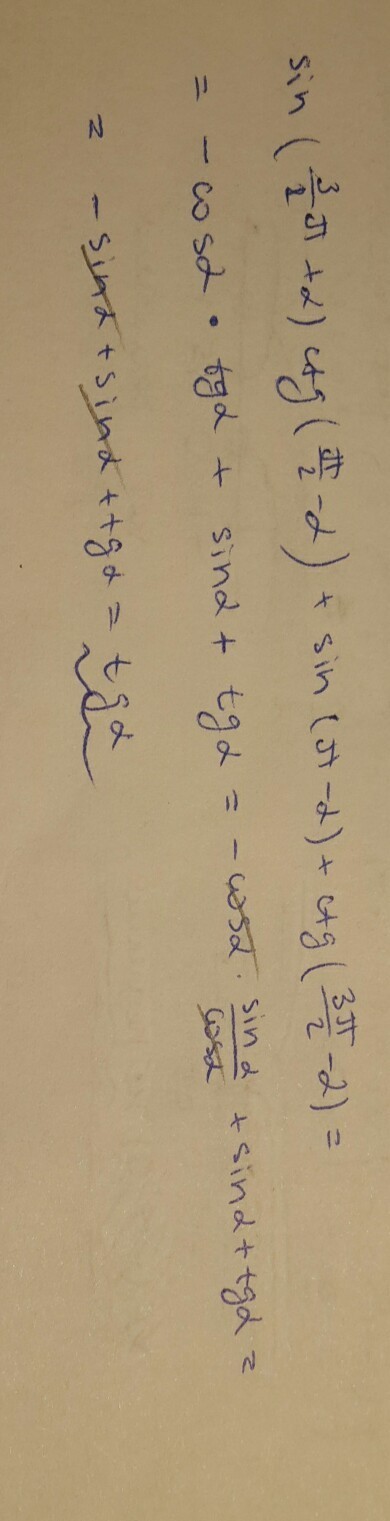 sin (3/2 π + α) ctg (π/2 - α) + sin (π - α) + ctg (3π/2 - α) =
= - cosα • tgα + sinα + tgα = - cosα · sinα/cosα + sinα + tgα =
= - sinα + sinα + tgα = tgα